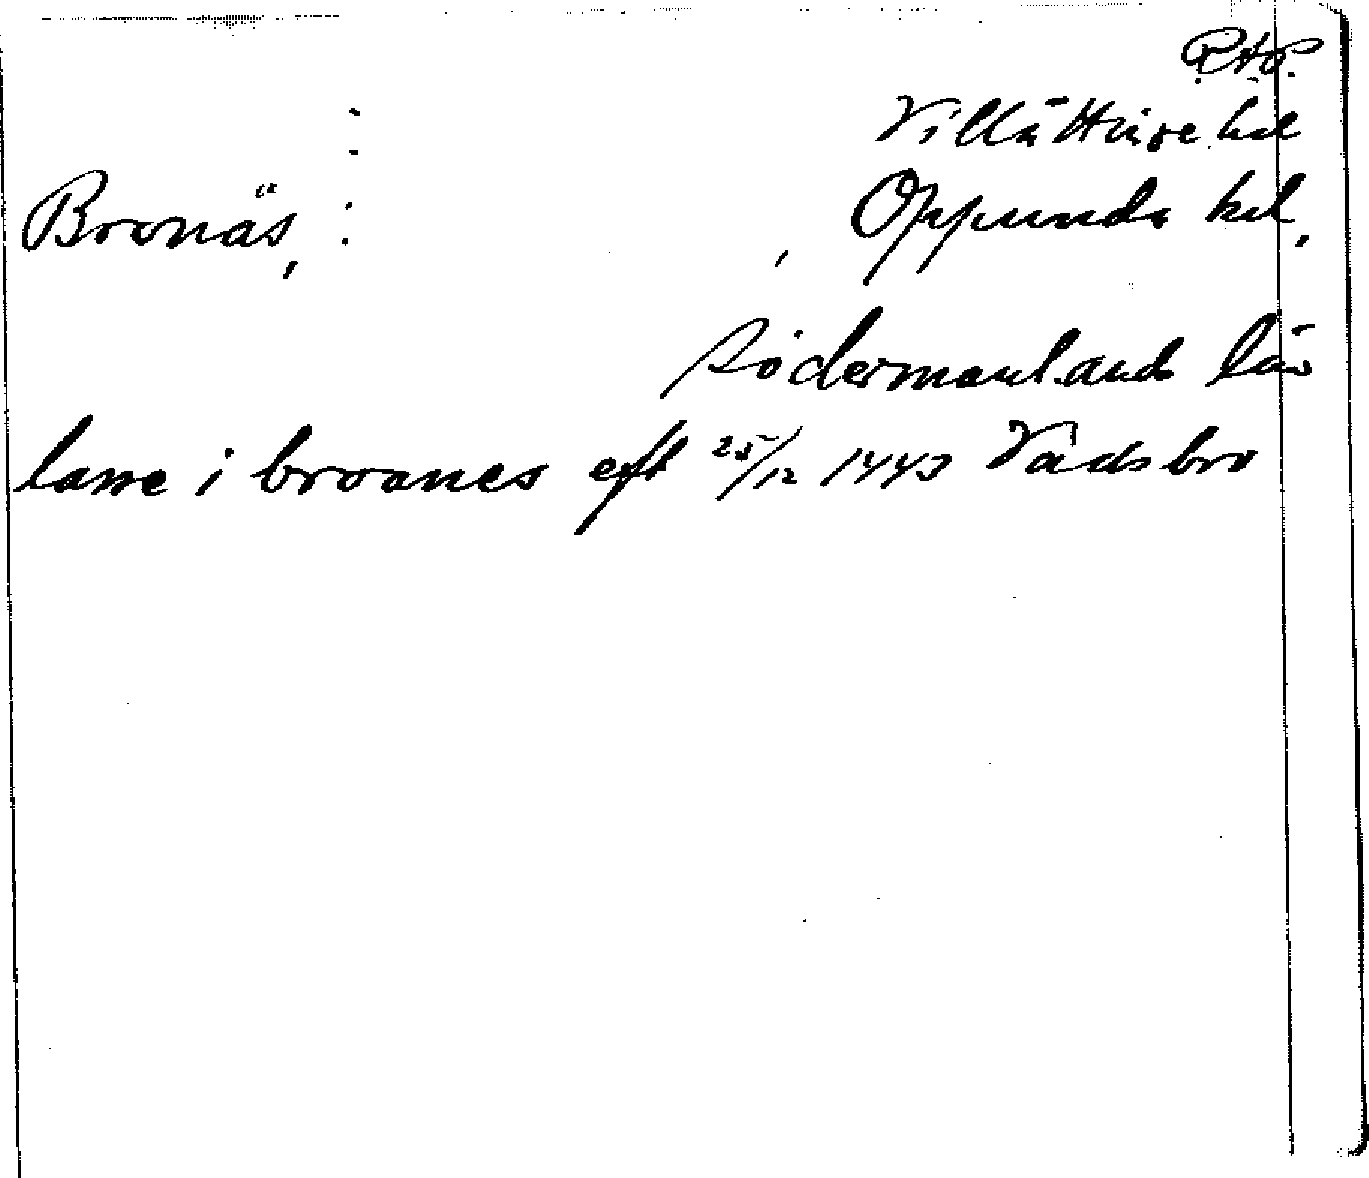 RAP.
Villåttinge hd
Bronäs, : , Oppunda hd,
Södermanlands län
lasse i broanes eft 25/12 1443 Vadsbro